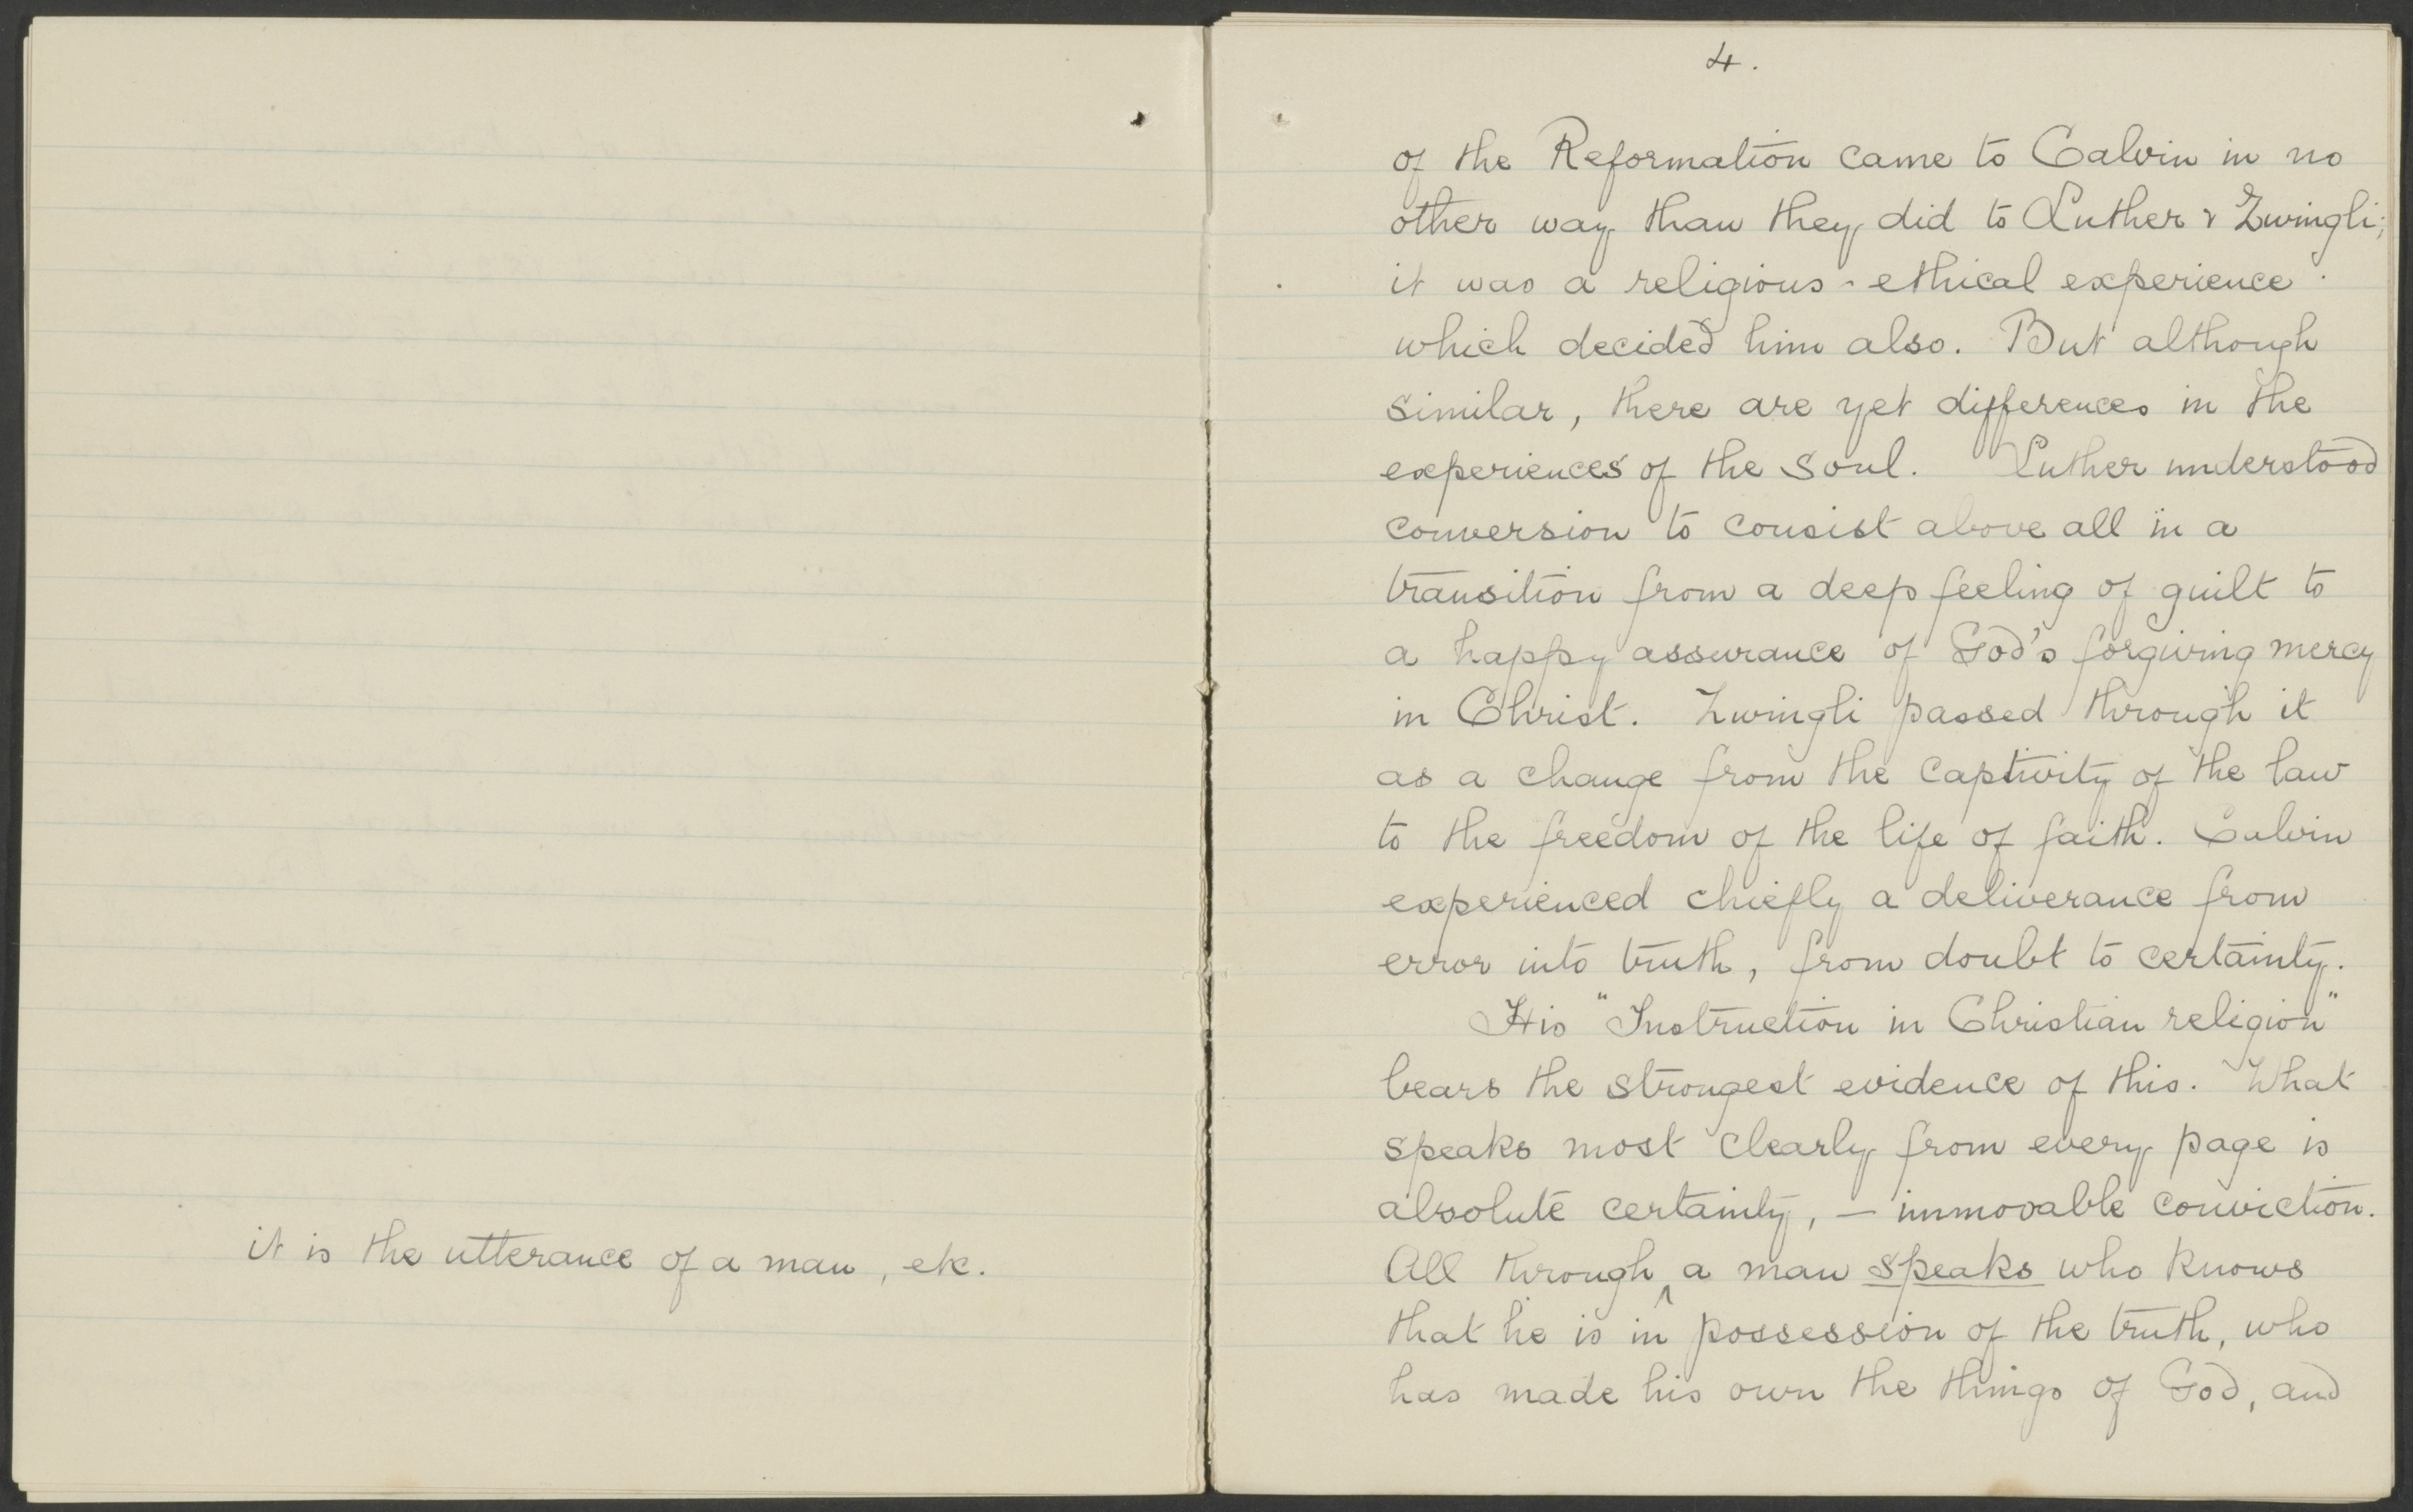 it is the utterance of a man, etc.
4.
of the Reformation came to Calvin in no
other way than they did to Luther & Zwingli;
it was a religious-ethical experience
which decided him also. But although
similar, there are yet differences in the
experiences of the soul. Luther understood
conversion to consist above all in a
transition from a deep feeling of guilt to
a happy assurance of God's forgiving mercy
in Christ. Zwingli passed through it
as a change from the captivity of the law
to the freedom of the life of faith. Calvin
experienced chiefly a deliverance from
error into truth, from doubt to certainty.
His "Instruction in Christian religion"
bears the strongest evidence of this. What
speaks most clearly from every page is
absolute certainty, — immovable conviction.
All through ^ a man speaks who knows
that he is in possession of the truth, who
has made his own the things of God, and